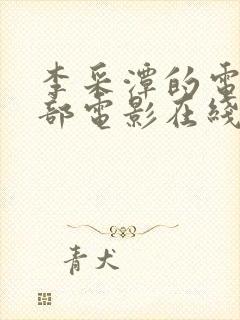 李采潭的電
部電影在綫
青犬